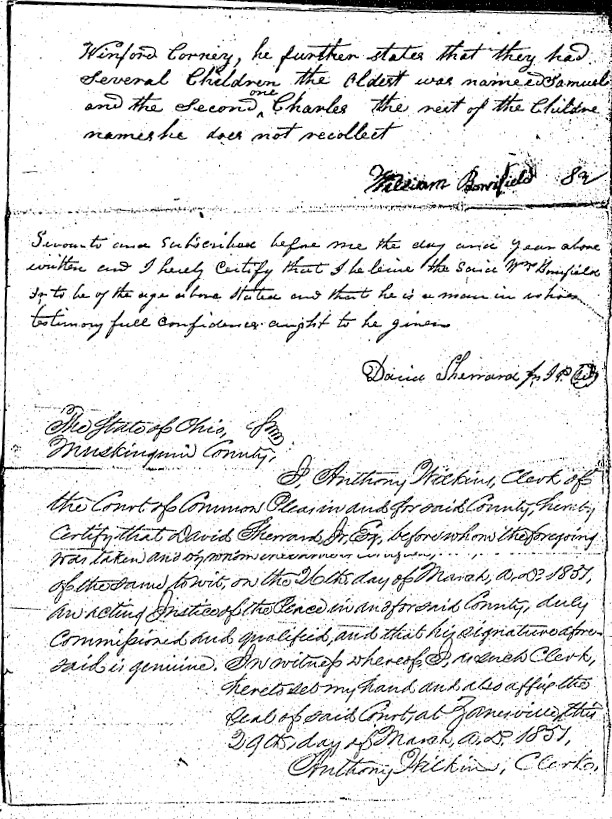 Winford Corney, he further states that they had
Several Children the Oldest was named Samuel
and the Second one Charles the rest of the Childre
names he does not recollect
William Bonifield 82
Sworn to and Subscribed before me the day and year above
written and I hereby Certify that I beleive the Said Wm Bonifield
Sr to be of the age above Stated and that he is a man in whose
testimony full confidence aught to be given
David Sherrard Jr J.P.
The State of Ohio,
Muskingum County,
I, Anthony Wilkins, Clerk of
the Court of Common Pleas in and for said County, hereby
Certify that David Sherrard Jr. Esq. before whom the foregoing
was taken and
of the same, to wit, on the 26th day of March, A.D. 1851,
an acting Justice of the Peace in and for said County, duly
Commissioned and qualified, and that his signature afore-
said is genuine. In witness whereof I, as such Clerk,
hereto set my hand and also affix the
Seal of said Court, at Zanesville, this
29th day of March, A.D. 1851,
Anthony Wilkins, Clerk.